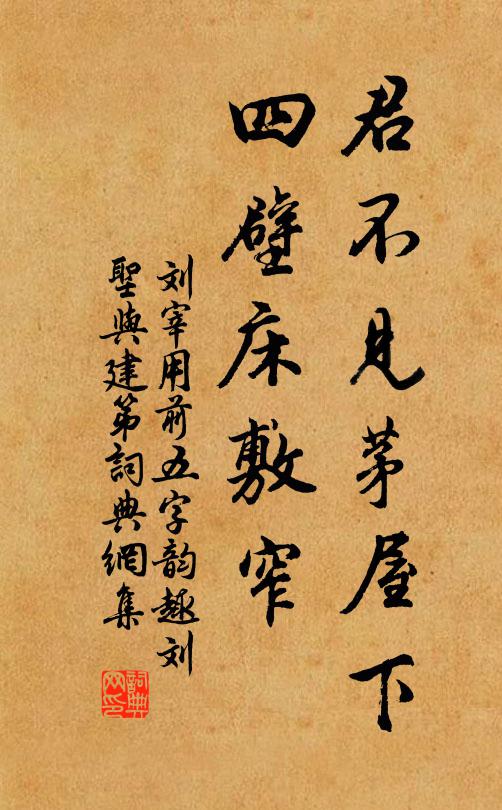 君不見茅屋下
四壁床敷窄
刘宰用前五字韵趣刘
聖與建第詞典網集
詞典网印